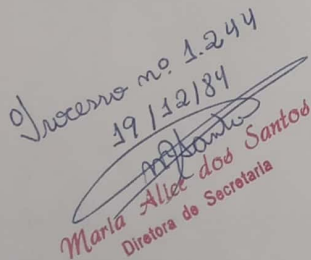 Processo nº 1.244
19/12/84
MSantos
Maria Alice dos Santos
Diretora de Secretaria